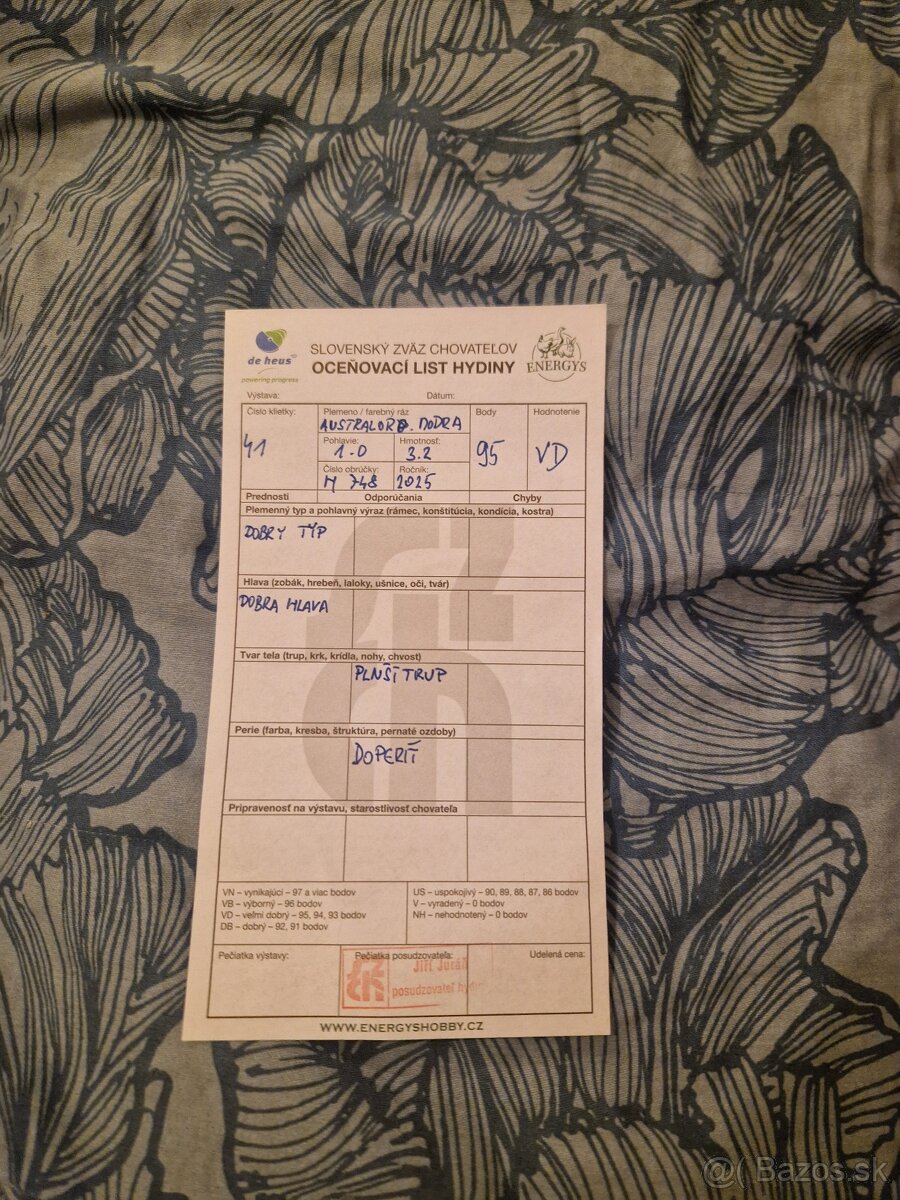 de heus
powering progress
SLOVENSKÝ ZVÄZ CHOVATEĽOV
OCEŇOVACÍ LIST HYDINY
ENERGYS
Výstava: Dátum:
Číslo klietky: Plemeno / farebný ráz Body Hodnotenie
AUSTRALORP. MODRA
41 Pohlavie: Hmotnosť: 95 VD
1.0 3.2
Číslo obrúčky: Ročník:
M 748 2025
Prednosti Odporúčania Chyby
Plemenný typ a pohlavný výraz (rámec, konštitúcia, kondícia, kostra)
DOBRY TYP
Hlava (zobák, hrebeň, laloky, ušnice, oči, tvár)
DOBRA HLAVA
Tvar tela (trup, krk, krídla, nohy, chvost)
PLNŠÍ TRUP
Perie (farba, kresba, štruktúra, pernaté ozdoby)
DOPERIŤ
Pripravenosť na výstavu, starostlivosť chovateľa
VN – vynikajúci – 97 a viac bodov US – uspokojivý – 90, 89, 88, 87, 86 bodov
VB – výborný – 96 bodov V – vyradený – 0 bodov
VD – veľmi dobrý – 95, 94, 93 bodov NH – nehodnotený – 0 bodov
DB – dobrý – 92, 91 bodov
Pečiatka výstavy: Pečiatka posudzovateľa: Udelená cena:
Jiří Juráň
posudzovateľ
WWW.ENERGYSHOBBY.CZ
@( Bazos.sk